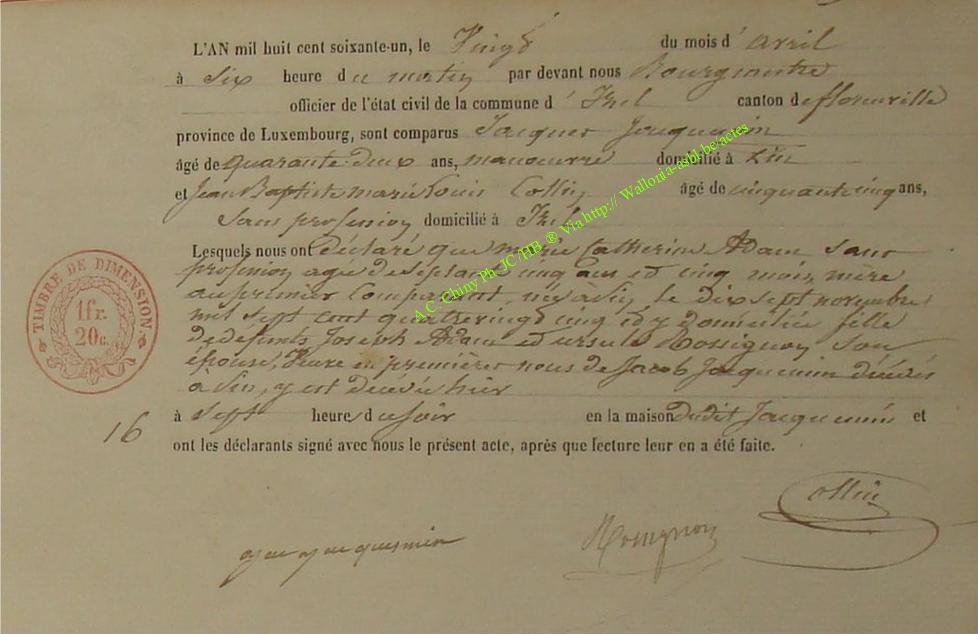 L'AN mil huit cent soixante-un, le Vingt du mois d'avril
à Six heure du matin par devant nous Bourgmestre
officier de l'état civil de la commune d'Izel canton de florenville
province de Luxembourg, sont comparus Jacques Jacquemin
âgé de quarante deux ans, manoeuvre domicilié à
et Jean Baptiste marie Louis Collin âgé de cinquante cinq ans,
Sans profession domicilié à Izel
Lesquels nous ont déclaré que marie Catherine Adam, Sans
profession agée de Septante cinq ans et cinq mois, mère
au premier Comparant, née à le dix sept novembre
mil sept cent quatrevingt cinq et y domiciliée fille
de défunts Joseph Adam et ursule Rossignon son
épouse, Veuve en premières noces de Jacob Jacquemin décédé
a y est décédée hier
à Sept heure du soir en la maison dudit Jacquemin et
ont les déclarants signé avec nous le présent acte, après que lecture leur en a été faite.
16
TIMBRE DE DIMENSION.
1fr.
20c.
A.C. Chiny Ph JC/HB ® Via http:// Wallonia-asbl.be/actes
Collin
jacquemin